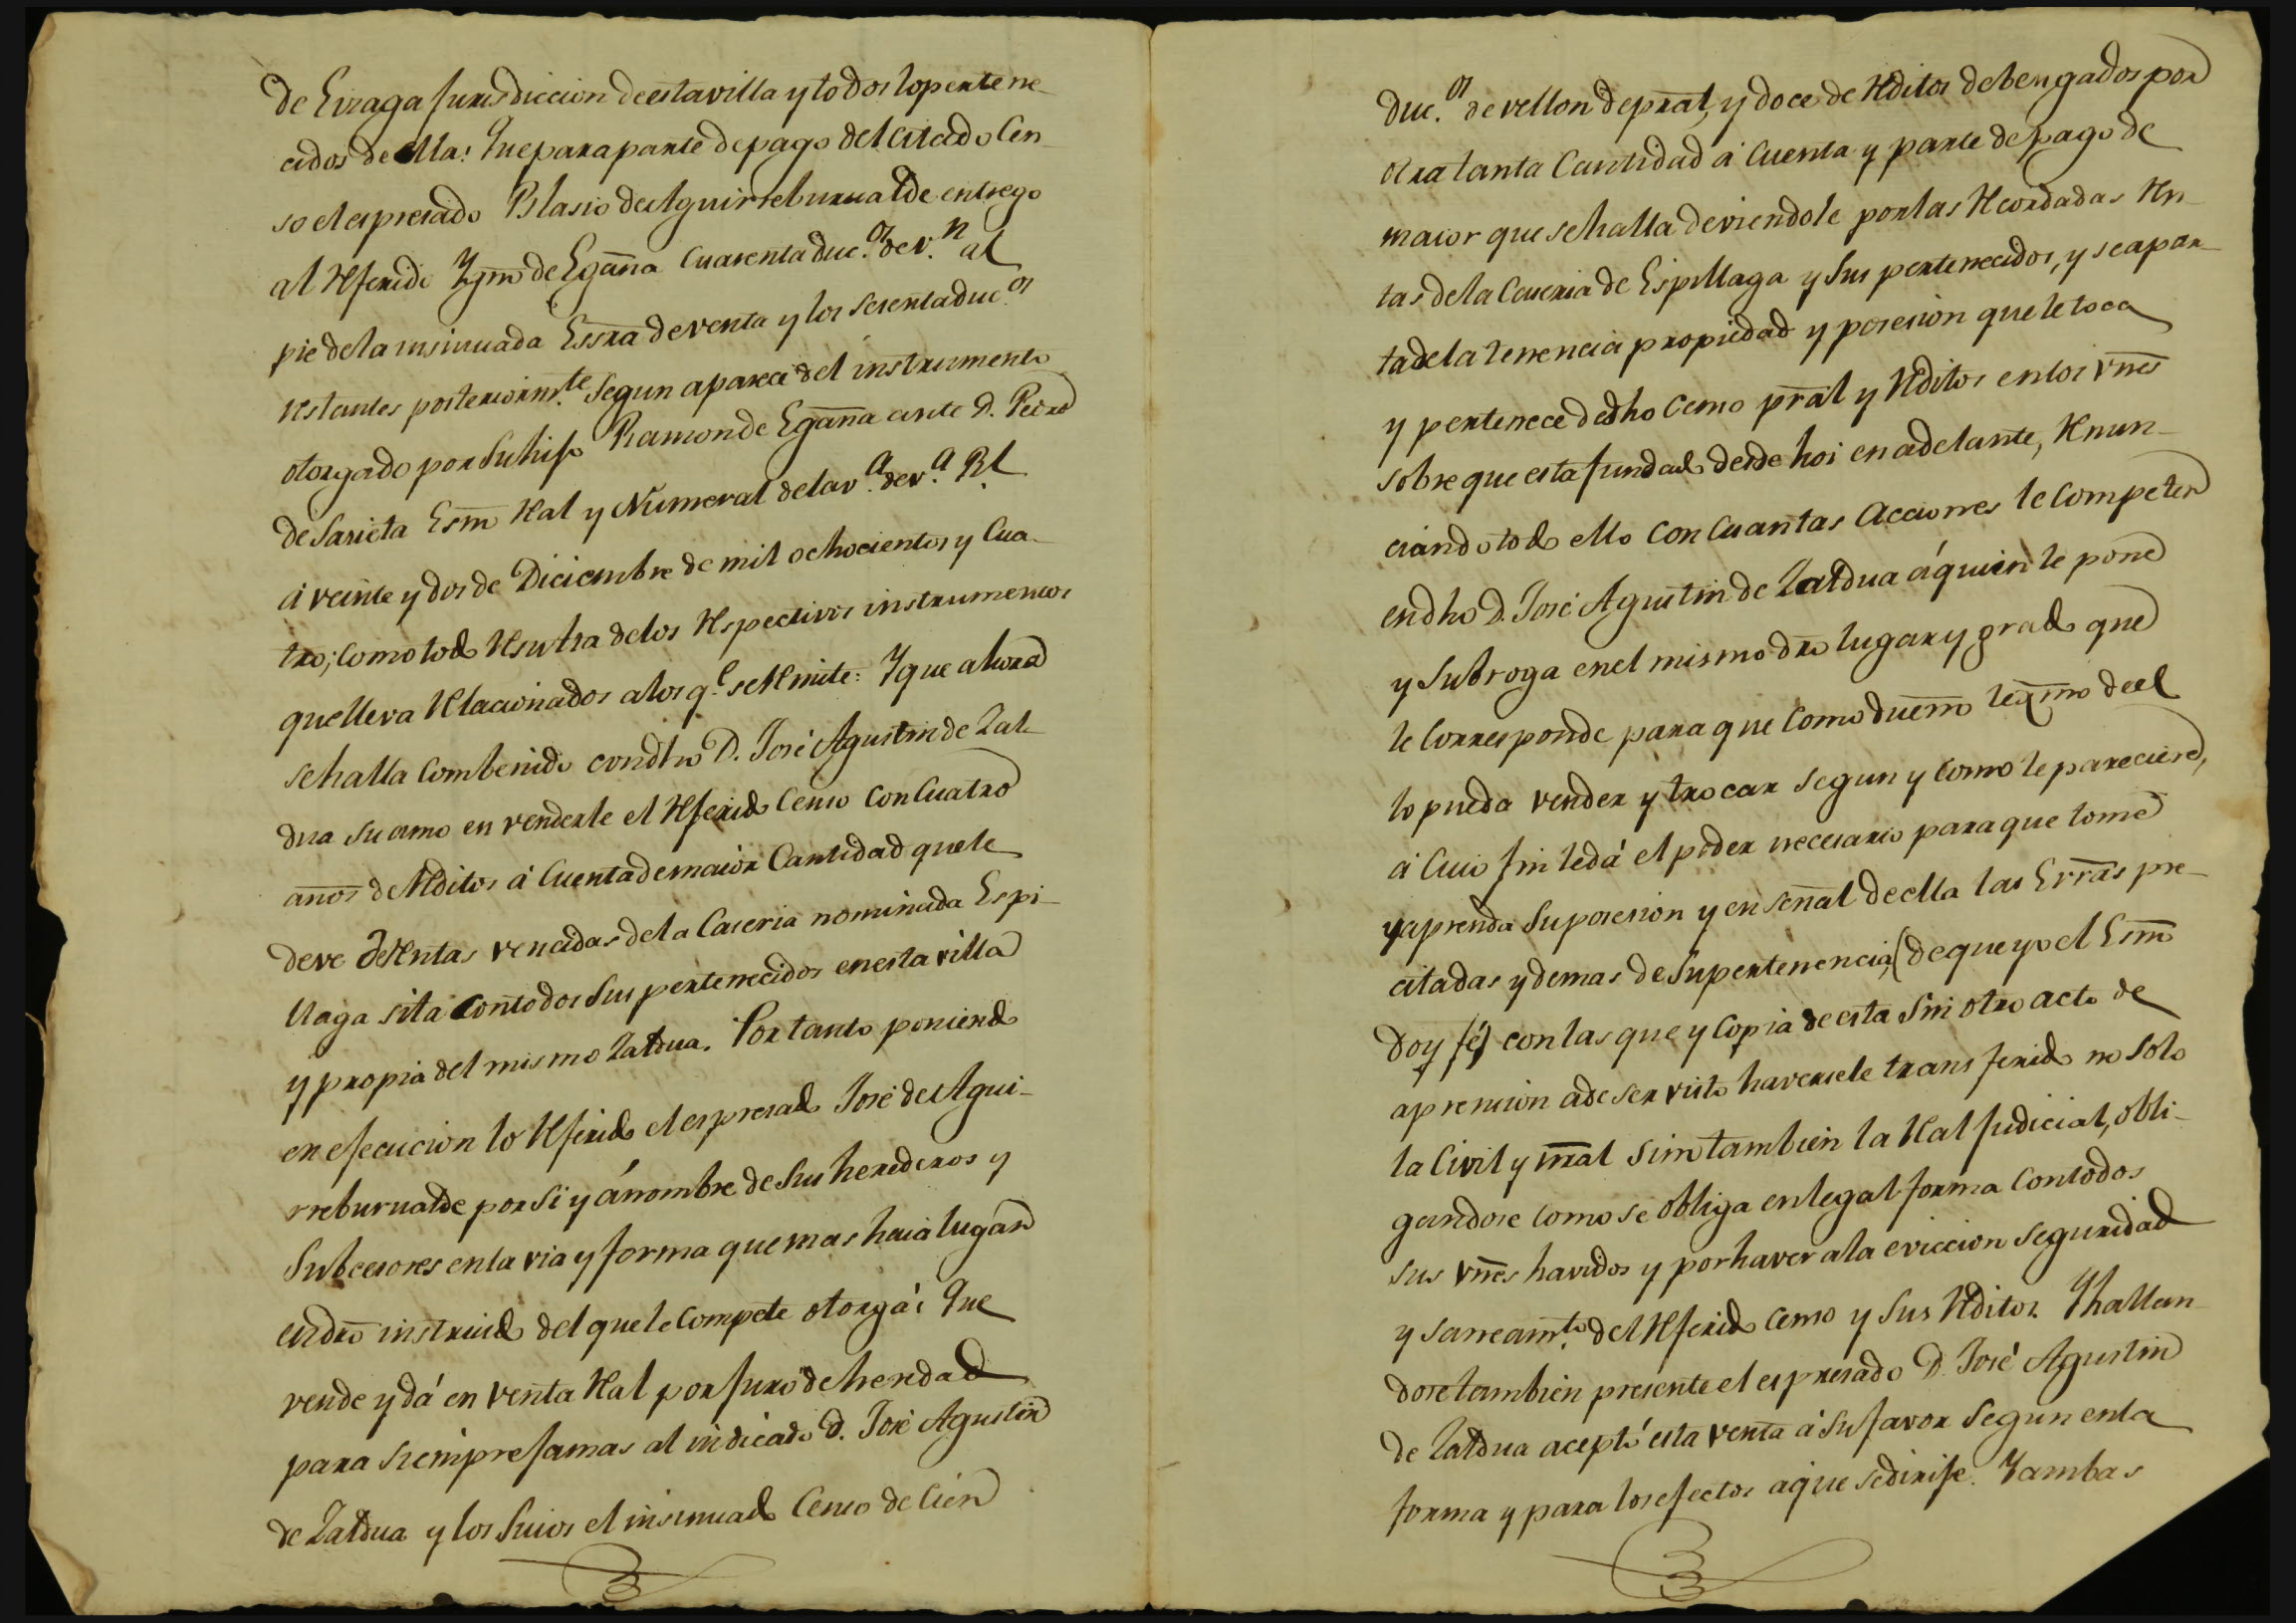 de Eizaga jurisdiccion de esta villa y todos lo pertene-
cidos de ella: Que para parte de pago del citado Cen-
so el espresado Blasio de Aguirreburualde entrego
al Rferido Ygn.º de Egaña cuarenta duc.os de v.n al
pie de la insinuada Essra de venta y los sesenta duc.os
restantes posteriorm.te segun aparece del instrumento
otorgado por su hijo Ramon de Egaña ante D. Pedro
de Sarieta Esno Ral y Numeral de la v.a de v.a R.l
á veinte y dos de Diciembre de mil ochocientos y cua-
tro; como todo Rsulta de los Rspectivos instrumentos
que lleva Rlacionados a los q.e se Rmite: Y que ahora
se halla combenido con dho D. José Agustin de Zal-
dua su amo en venderle el Rferido Censo con cuatro
años de Rditos á cuenta de maior cantidad que le
deve de Rntas vencidas de la Caseria nominada Espi-
llaga sita con todos sus pertenecidos en esta villa
y propia del mismo Zaldua. Por tanto poniendo
en ejecucion lo Rferido el espresado José de Agui-
rreburualde por si y á nombre de sus herederos y
subcesores en la via y forma que mas haia lugar
en dro instruido del que le compete otorga: Que
vende y dá en venta Ral por juro de heredad
para siempre jamas al indicado D. José Agustin
de Zaldua y los suios el insinuado Censo de Cien
duc.os de vellon de pral, y doce de Rditos debengados por
otra tanta cantidad á cuenta y parte de pago de
maior que se halla deviendole por las Rcordadas Rn-
tas de la Caseria de Espillaga y sus pertenecidos, y se apar-
ta de la tenencia propiedad y posesion que le toca
y pertenece á dho Censo pral y Rditos en los vnes
sobre que esta fundado desde hoi en adelante, Rnun-
ciando todo ello con cuantas acciones le competen
en dho D. José Agustin de Zaldua á quien le pone
y subroga en el mismo dro lugar y grado que
le corresponde para que como dueño legmo de el
lo pueda vender y trocar segun y como le pareciere,
á cuio fin le dá el poder necesario para que tome
y aprenda su posesion y en señal de ella las Erras pre-
citadas y demas de su pertenencia, (de que yo el Esno
doy fé) con las que y copia de esta sin otro acto de
aprension a de ser visto haversele transferido no solo
la Civil y nral sino tambien la Ral judicial, obli-
gandose como se obliga en legal forma con todos
sus vnes havidos y por haver a la eviccion seguridad
y saneam.to del Rferido censo y sus Rditos. Y hallan-
dose tambien presente el espresado D. José Agustin
de Zaldua aceptó esta venta á su favor segun en la
forma y para los efectos a que se dirije. Y ambas